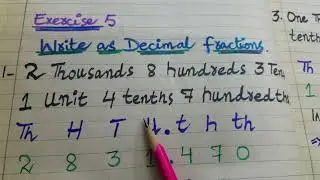 Exercise 5
Write as Decimal fractions.
1- 2 Thousands 8 hundreds 3 Tens
1 Unit 4 tenths 7 hundredths
Th H T U . t h th
2 8 3 1 . 4 7 0
3. One
tenth